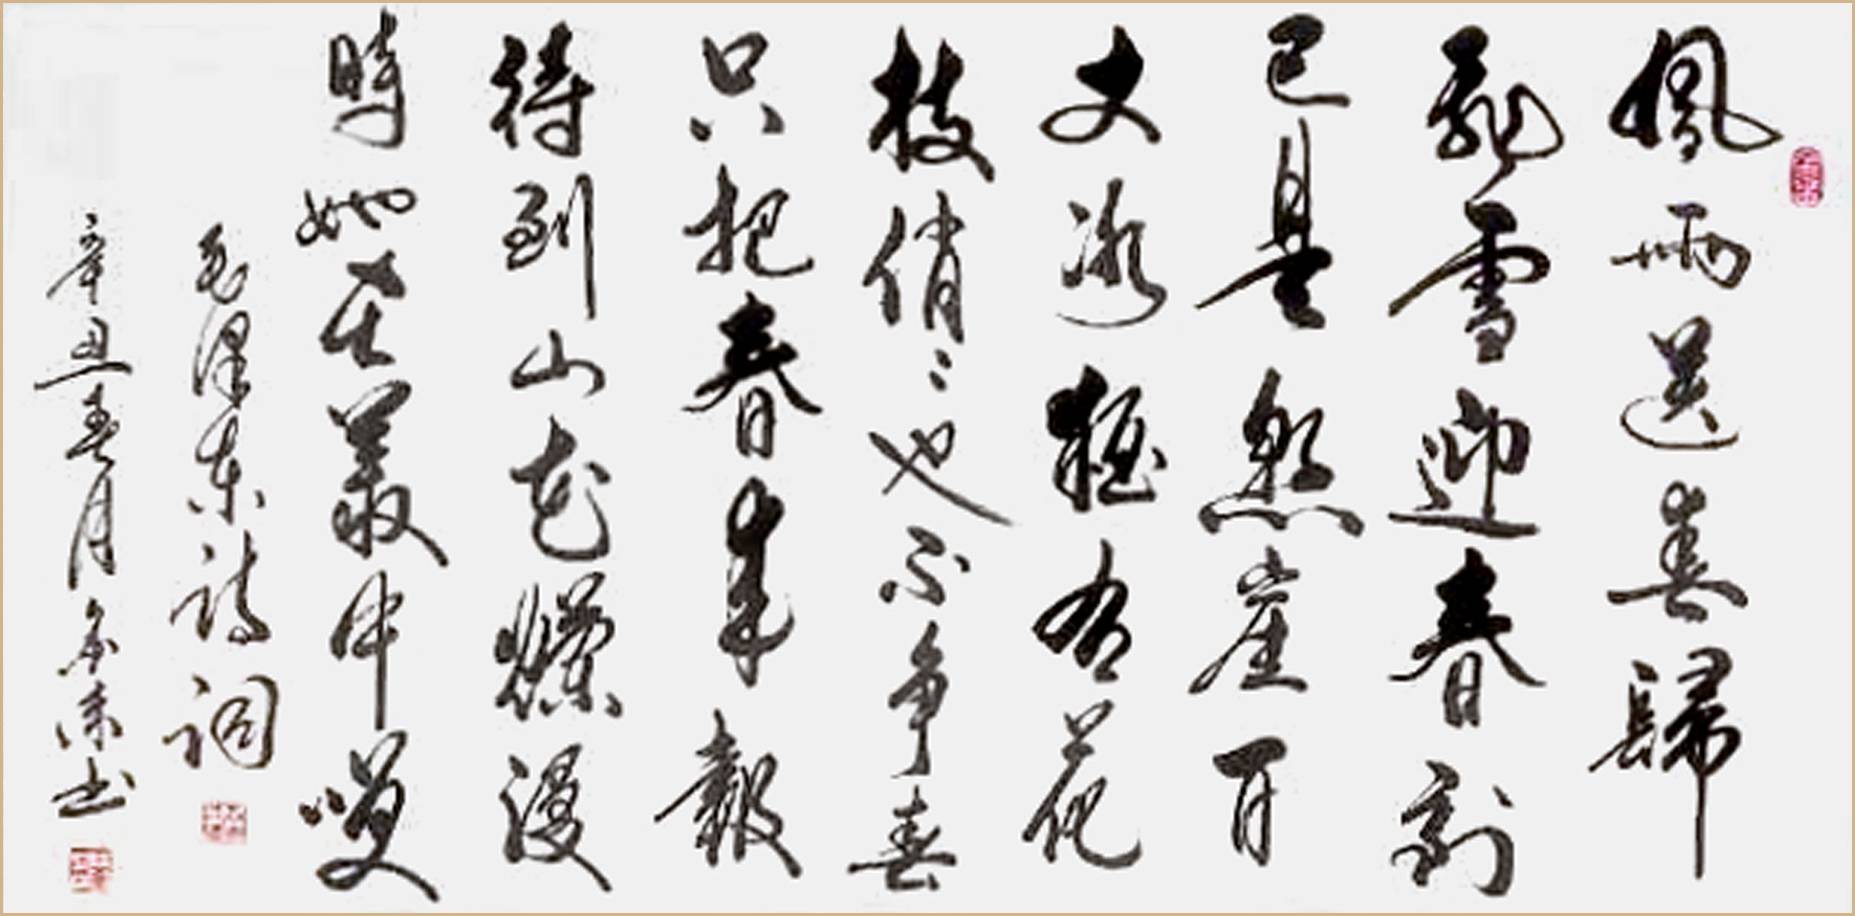 風雨送春歸
飛雪迎春到
已是懸崖百
丈冰猶有花
枝俏〻也不争春
只把春来報
待到山花爛漫
時她在叢中咲
毛澤东詩詞
辛丑春月书